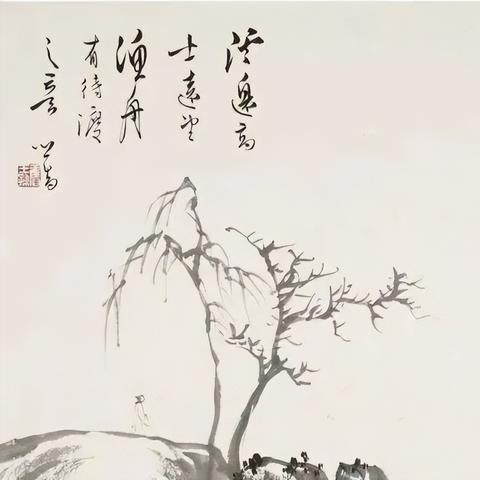 溪邊高
士遠望
漁舟
有待渡
之意 心畬